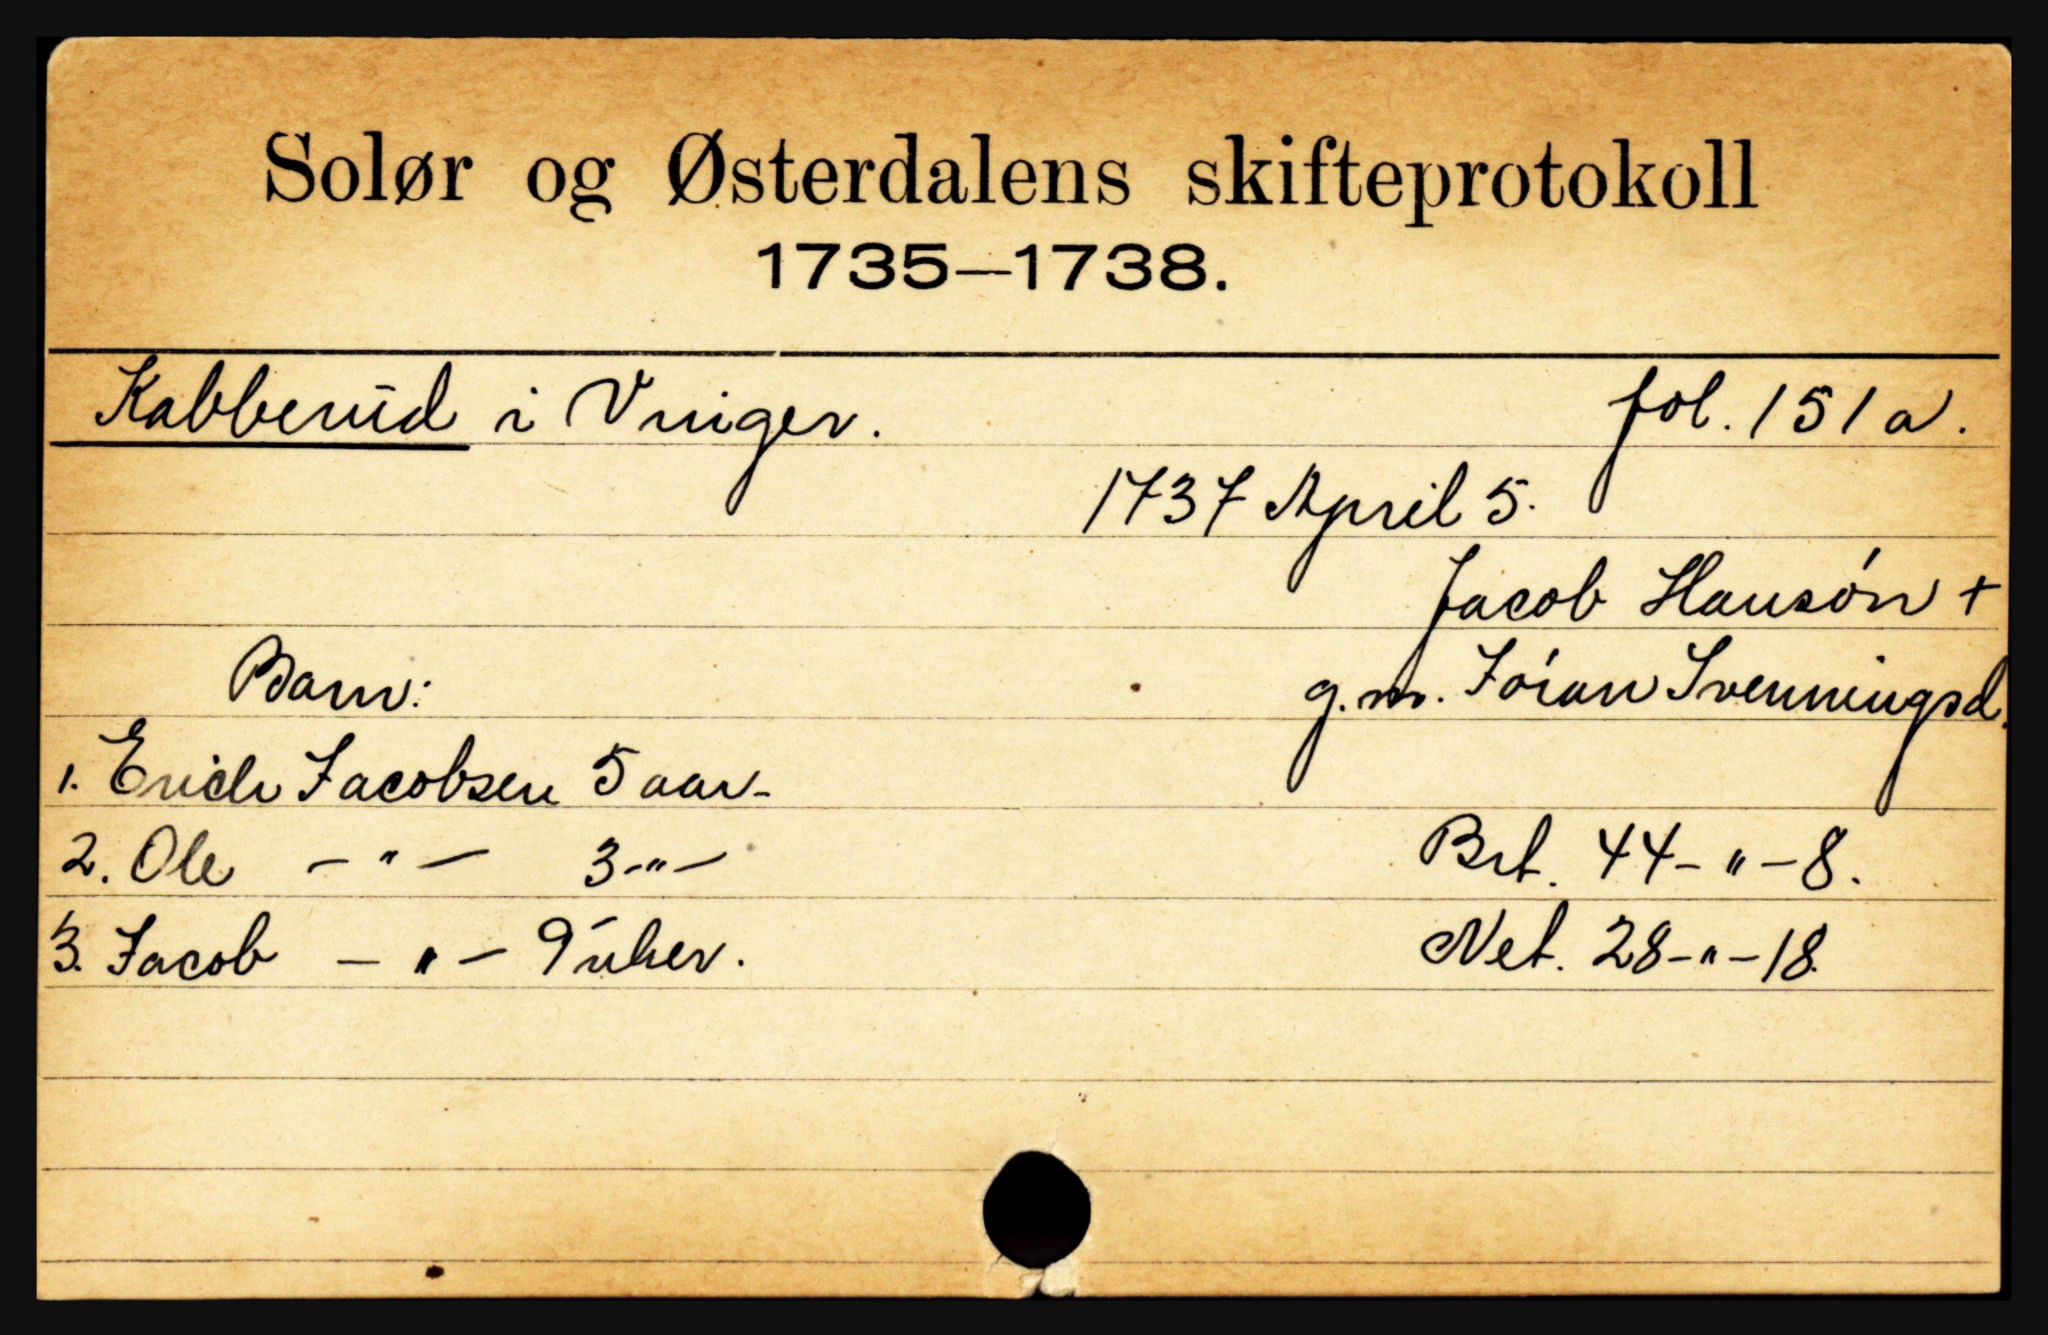 Solør og Østerdalens skifteprotokoll
1735—1738.
Kabberud i Vniger. fol. 151a.
1737 April 5.
Jacob Hansøn +
Barn: g.m. Jøran Svenningsd.
1. Erich Jacobsen 5 aar-
2. Ole - " - 3-"- Brt. 44-"-8.
3. Jacob - " - 9 uker. Net. 28-"-18.